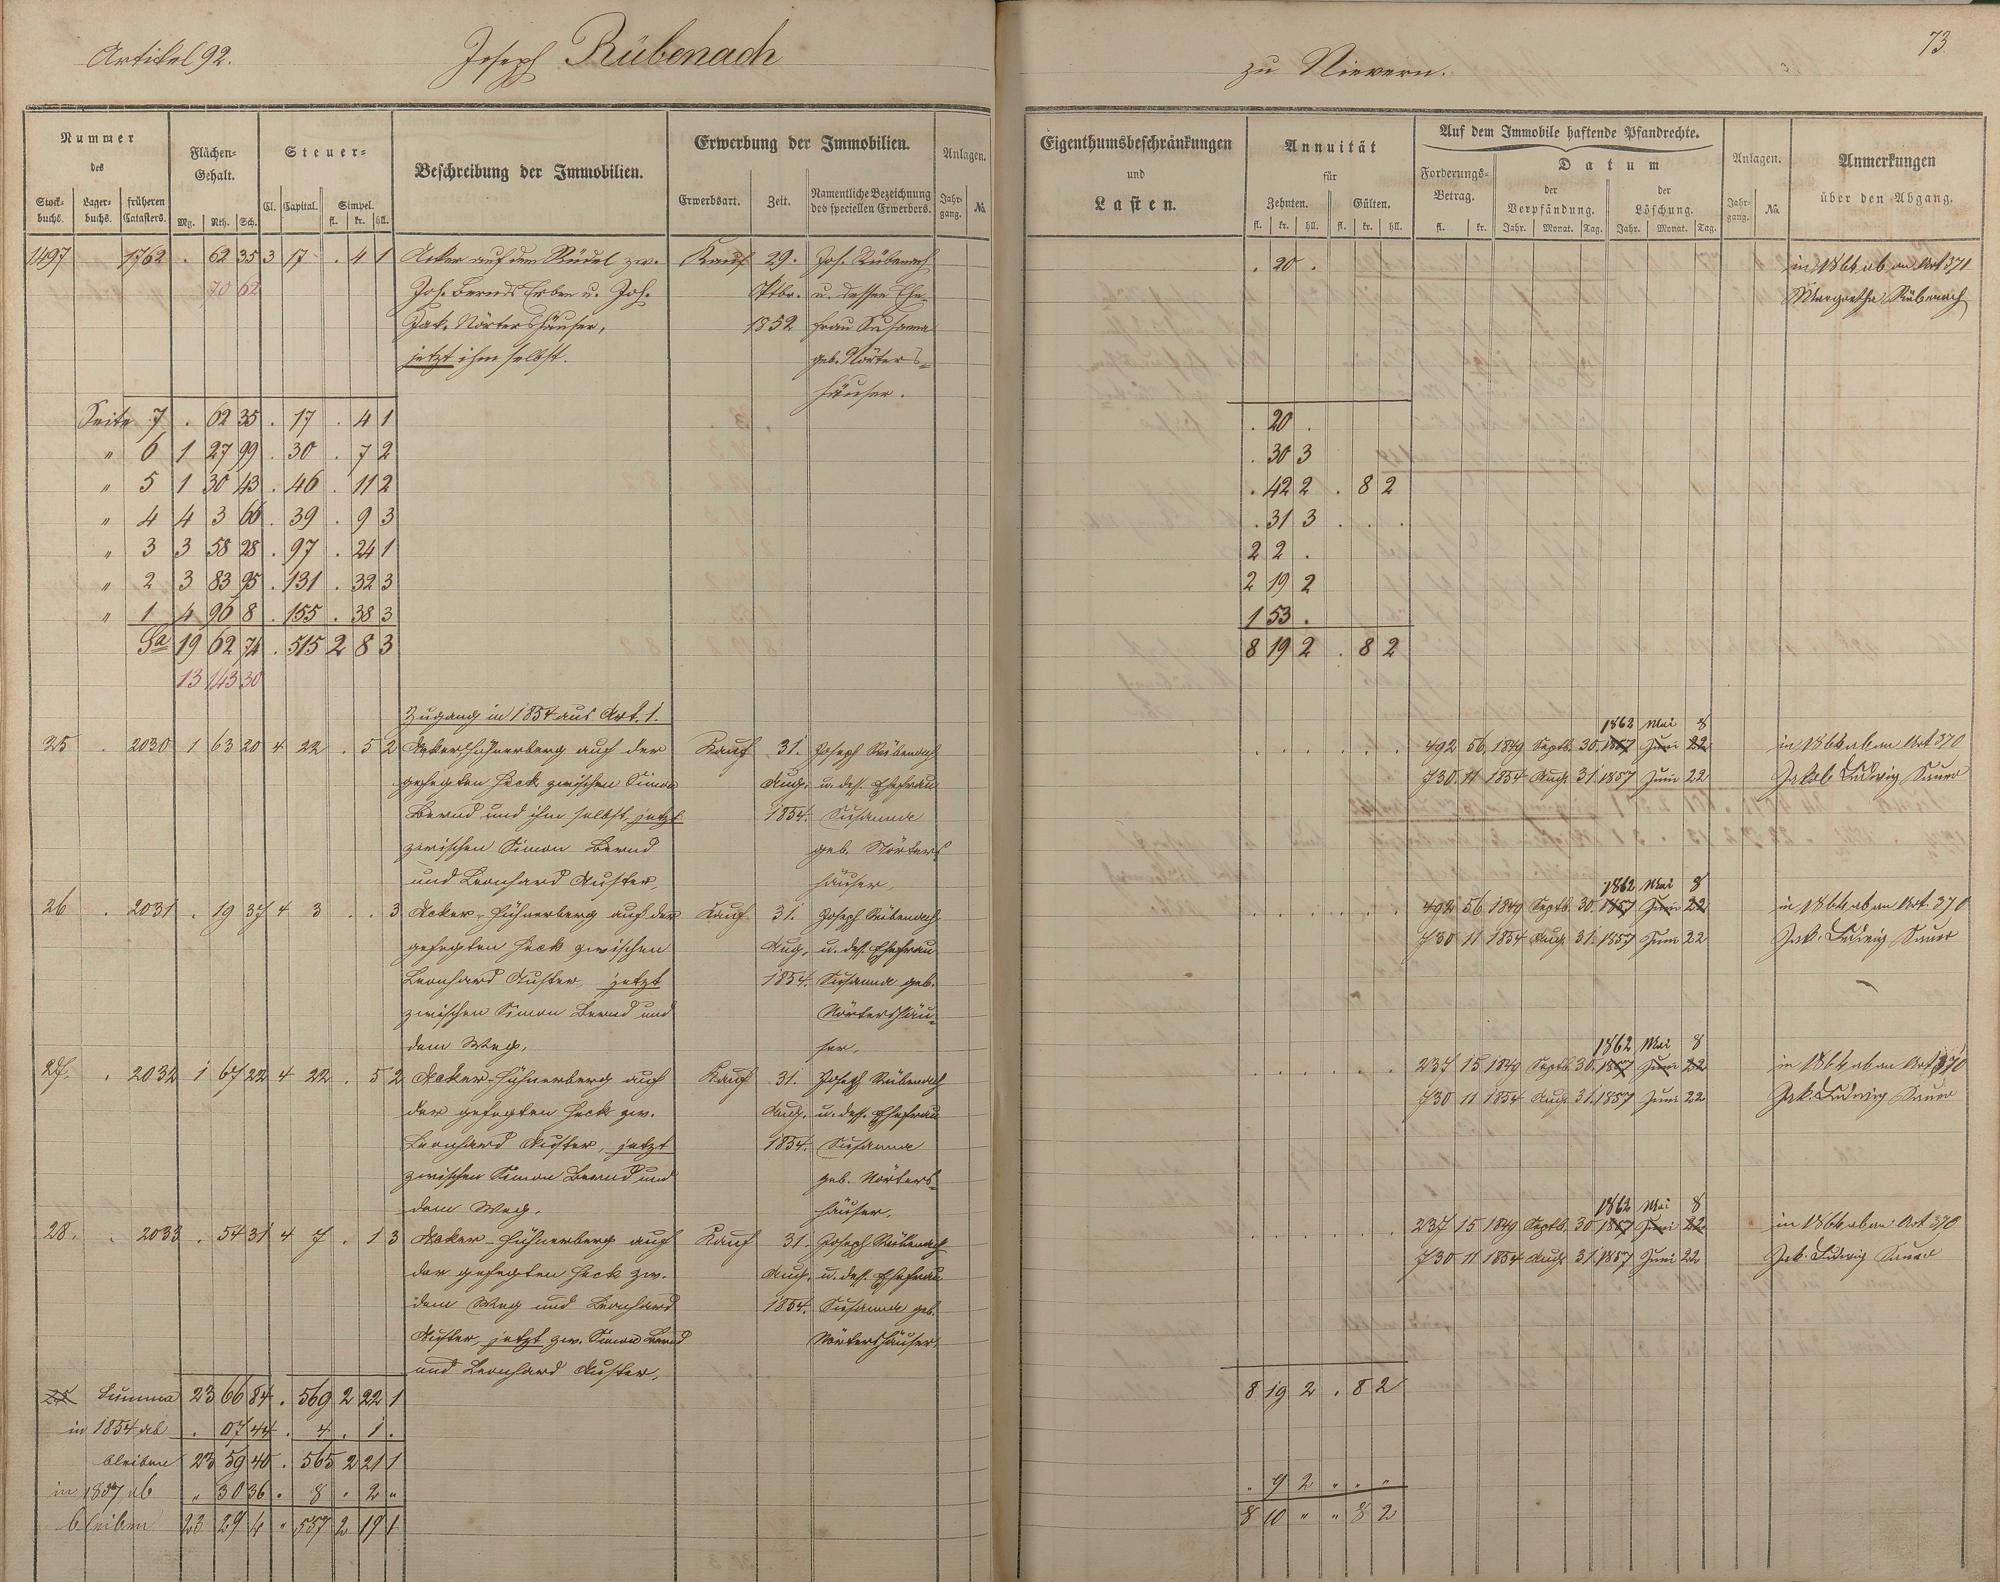 Artikel 92.
Joseph Rübenach
zu Nievern.
73
Nummer des
Stockbuchs. Lagerbuchs. früheren Catasters.
Flächen-Gehalt.
Mg. Rth. Sch.
Steuer-
Cl. Capital. Simpel.
fl. kr. hll.
Beschreibung der Immobilien.
Erwerbung der Immobilien.
Erwerbsart. Zeit. Namentliche Bezeichnung des speciellen Erwerbers.
Anlagen.
Jahrgang. No.
Eigenthumsbeschränkungen und Lasten.
Annuität für
Zehnten. Gülten.
fl. kr. hll. fl. kr. hll.
Auf dem Immobile haftende Pfandrechte.
Forderungs-Betrag.
fl. kr.
Datum
der Verpfändung. der Löschung.
Jahr. Monat. Tag. Jahr. Monat. Tag.
Anlagen.
Jahrgang. No.
Anmerkungen über den Abgang.
1497 1762 . 62 35 3 17 . 4 1 Acker auf dem Rüdel zw. Kauf 29. Joh. Rübenach . 20 . in 1864 ab an Art 371
70 62 Joh. Bernds Erben u. Joh. Ptbr. u. dessen Ehe- Margaretha Rübenach
Jak. Nörtershäuser, 1852 frau Susanna
jetzt ihm selbst. geb. Nörters-
häuser.
Seite 7 . 62 35 . 17 . 4 1 . 20 .
" 6 1 27 99 . 30 . 7 2 . 30 3
" 5 1 30 43 . 46 . 11 2 . 42 2 . 8 2
" 4 4 3 66 . 39 . 9 3 . 31 3 . . .
" 3 3 58 28 . 97 . 24 1 2 2 .
" 2 3 83 95 . 131 . 32 3 2 19 2
" 1 4 96 8 . 155 . 38 3 1 53 .
Sa 19 62 74 . 515 2 8 3 8 19 2 . 8 2
13 143 30
Zugang in 1854 aus Art. 1.
1862 Mai 8
25 . 2030 1 63 20 4 22 . 5 2 Acker Hühnerberg auf der Kauf 31. Joseph Rübenach 492 56 1849 Septb. 30. 1857 Juni 22 in 1864 ab an Art 370
gefegten Heck zwischen Simon Aug. u. dess. Ehefrau 730 11 1854 Aug. 31. 1857 Juni 22 Jakob Ludwig Sauer
Bernd und ihm selbst, jetzt 1854. Susanna
zwischen Simon Bernd geb. Nörters
und Leonhard Auster, häuser,
1862 Mai 8
26 . 2031 . 19 37 4 3 . . 3 Acker-Hühnerberg auf der Kauf 31. Joseph Rübenach 492 56 1849 Septb. 30. 1857 Juni 22 in 1864 ab an Art. 370
gefegten Heck zwischen Aug. u. dess. Ehefrau 730 11 1854 Aug. 31. 1857 Juni 22 Jak. Ludwig Sauer
Leonhard Auster, jetzt 1854. Susanna geb.
zwischen Simon Bernd und Nörtershäu-
dem Weg, ser,
1862 Mai 8
27. . 2032 1 67 22 4 22 . 5 2 Acker-Hühnerberg auf Kauf 31. Joseph Rübenach 237 15 1849 Septb. 30. 1857 Juni 22 in 1864 ab an Art 370
der gefegten Heck zw. Aug. u. dess. Ehefrau 730 11 1854 Aug. 31. 1857 Juni 22 Jak. Ludwig Sauer
Leonhard Auster, jetzt 1854. Susanna
zwischen Simon Bernd und geb. Nörters-
dem Weg. häuser,
1862 Mai 8
28. . 2033 . 54 31 4 7 . 1 3 Acker-Hühnerberg auf Kauf 31. Joseph Rübenach 237 15 1849 Septb. 30 1857 Juni 22 in 1864 ab an Art 370
der gefegten Heck zw. Aug. u. dess. Ehefrau 730 11 1854 Aug. 31. 1857 Juni 22 Jak. Ludwig Sauer
dem Weg und Leonhard 1854. Susanna geb.
Auster, jetzt zw. Simon Bernd Nörtershäuser,
und Leonhard Auster,
Summa 23 66 84 . 569 2 22 1 8 19 2 . 8 2
in 1854 ab . 07 44 . 4 . 1 .
bleiben 23 59 40 . 565 2 21 1
in 1857 ab " 30 36 . 8 . 2 " . 9 2 " " "
bleiben 23 29 4 " 557 2 19 1 8 10 " " 8 2